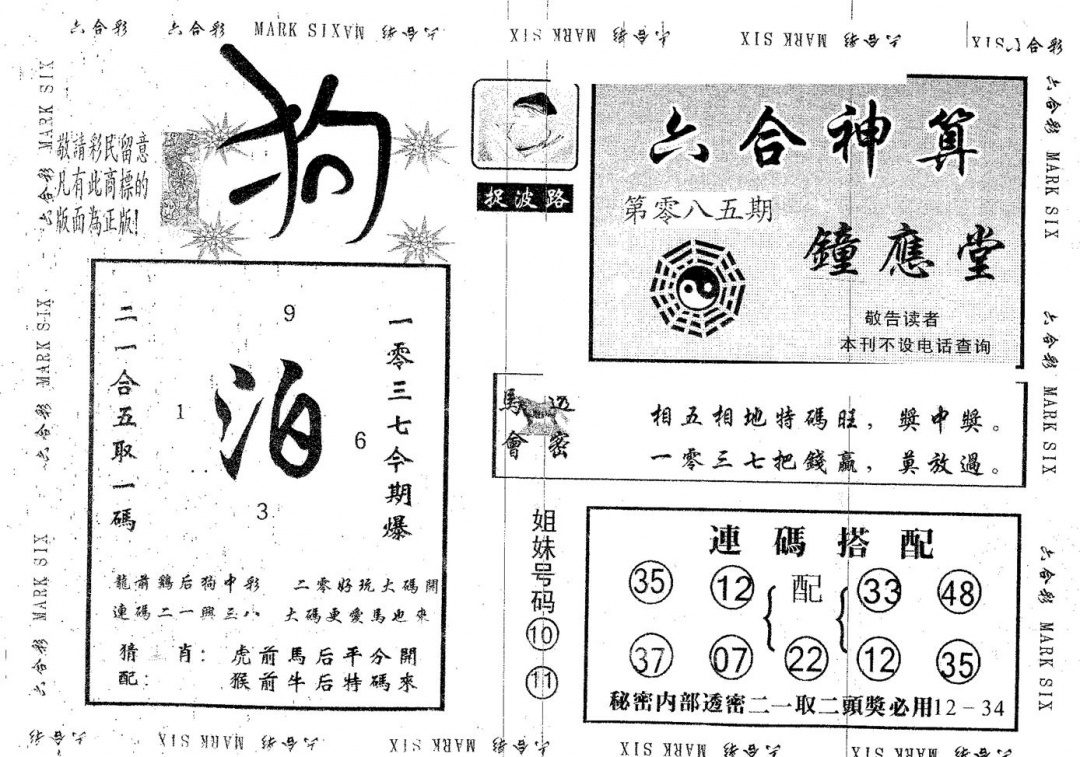 六合彩 六合彩 MARK SIX
MARK SIX 六合彩
MARK SIX 六合彩
六合彩
敬請彩民留意
凡有此商標的
版面為正版!
狗
捉波路
六合神算
第零八五期
鐘應堂
敬告读者
本刊不设电话查询
二一合五取一碼
9
1
泊
6
3
一零三七今期爆
龍前鷄后狗中彩 二零好玩大碼開
連碼二一興三八 大碼更愛馬也來
猜肖: 虎前馬后平分開
配: 猴前牛后特碼來
馬會
透密
相五相地特碼旺,獎中獎。
一零三七把錢贏,莫放過。
姐妹号码
10
11
連碼搭配
35 12 配 33 48
37 07 22 12 35
秘密内部透密二一取二頭獎必用12-34
六合彩 MARK SIX
六合彩 MARK SIX
六合彩 MARK SIX
六合彩 MARK SIX
六合彩 MARK SIX
六合彩 MARK SIX
六合彩
MARK SIX 六合彩
MARK SIX 六合彩
MARK SIX 六合彩
MARK SIX 六合彩